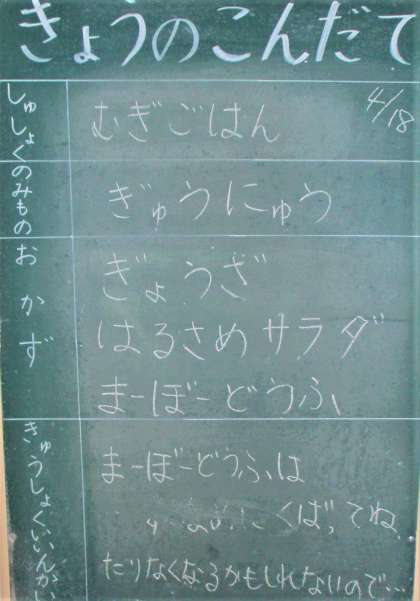 きょうのこんだて
4/18
しゅしょく
むぎごはん
のみもの
ぎゅうにゅう
おかず
ぎょうざ
はるさめサラダ
まーぼーどうふ
きゅうしょくいいんかい
まーぼーどうふは
くばってね
たりなくなるかもしれないので…